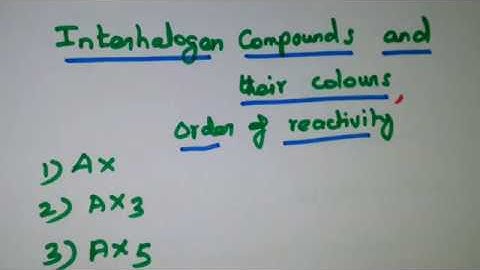 Interhalogen Compounds and
their colours,
order of reactivity
1) AX
2) AX3
3) AX5